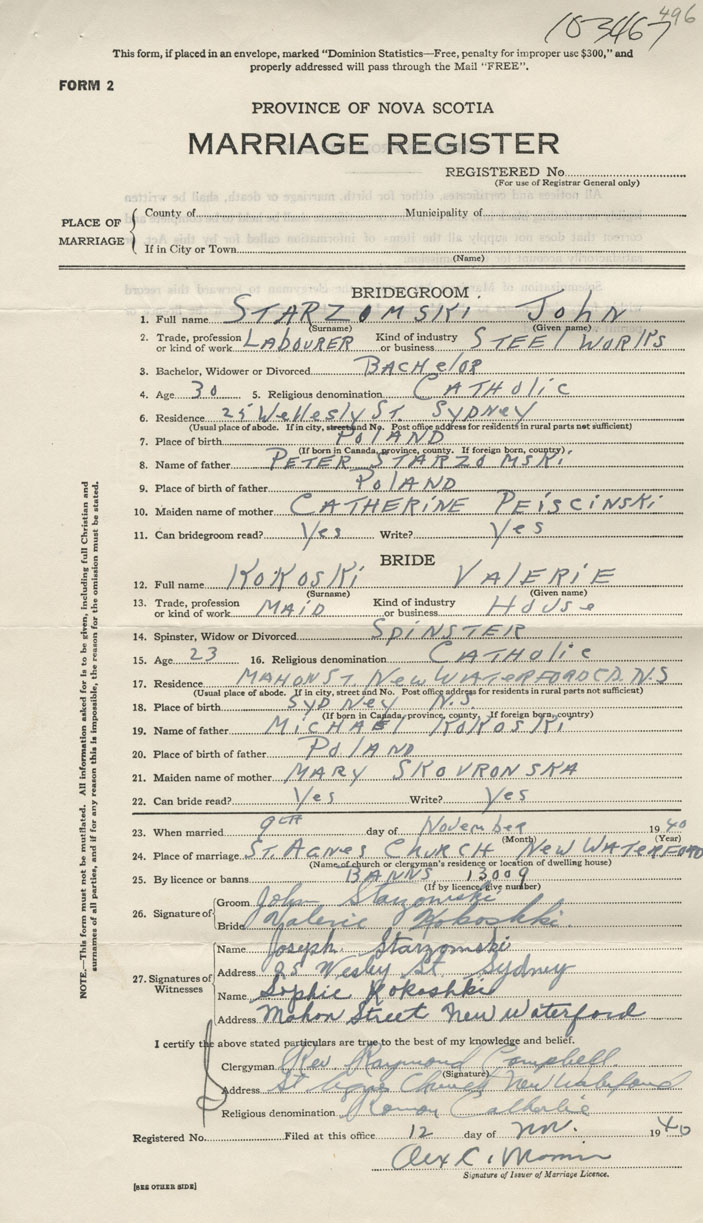 496
103467
This form, if placed in an envelope, marked "Dominion Statistics—Free, penalty for improper use $300," and
properly addressed will pass through the Mail "FREE".
FORM 2
PROVINCE OF NOVA SCOTIA
MARRIAGE REGISTER
REGISTERED No.
(For use of Registrar General only)
PLACE OF MARRIAGE
County of Municipality of
If in City or Town
(Name)
BRIDEGROOM
1. Full name STARZOMSKI JOHN
(Surname) (Given name)
2. Trade, profession or kind of work LABOURER Kind of industry or business STEEL WORKS
3. Bachelor, Widower or Divorced BACHELOR
4. Age 30 5. Religious denomination CATHOLIC
6. Residence 25 Wellesly ST. SYDNEY
(Usual place of abode. If in city, street and No. Post office address for residents in rural parts not sufficient)
7. Place of birth POLAND
(If born in Canada, province, county. If foreign born, country)
8. Name of father PETER STARZOMSKI
9. Place of birth of father POLAND
10. Maiden name of mother CATHERINE PEISCINSKI
11. Can bridegroom read? Yes Write? Yes
BRIDE
12. Full name KOKOSKI VALERIE
(Surname) (Given name)
13. Trade, profession or kind of work MAID Kind of industry or business House
14. Spinster, Widow or Divorced SPINSTER
15. Age 23 16. Religious denomination CATHOLIC
17. Residence MAHON ST. NEW WATERFORD C.B. N.S
(Usual place of abode. If in city, street and No. Post office address for residents in rural parts not sufficient)
18. Place of birth SYDNEY N.S.
(If born in Canada, province, county. If foreign born, country)
19. Name of father MICHAEL KOKOSKI
20. Place of birth of father POLAND
21. Maiden name of mother MARY SKOVRONSKA
22. Can bride read? Yes Write? Yes
23. When married 9TH day of November 1940
(Month) (Year)
24. Place of marriage ST. AGNES CHURCH NEW WATERFORD
(Name of church or clergyman's residence or location of dwelling house)
25. By licence or banns BANNS 13009
(If by licence, give number)
26. Signature of
Groom John Starzomski
Bride Valerie Kokoshki.
27. Signatures of Witnesses
Name Joseph Starzomski
Address 25 Wesley St. Sydney
Name Sophie Kokoshki
Address Mahon Street New Waterford
I certify the above stated particulars are true to the best of my knowledge and belief.
Clergyman Rev Raymond Campbell
(Signature)
Address St Agnes Church New Waterford
Religious denomination Roman Catholic
Registered No. Filed at this office 12 day of Nov. 1940
Alex C.
Signature of Issuer of Marriage Licence.
[SEE OTHER SIDE]
NOTE.—This form must not be mutilated. All information asked for is to be given, including full Christian and
surnames of all parties, and if for any reason this is impossible, the reason for the omission must be stated.